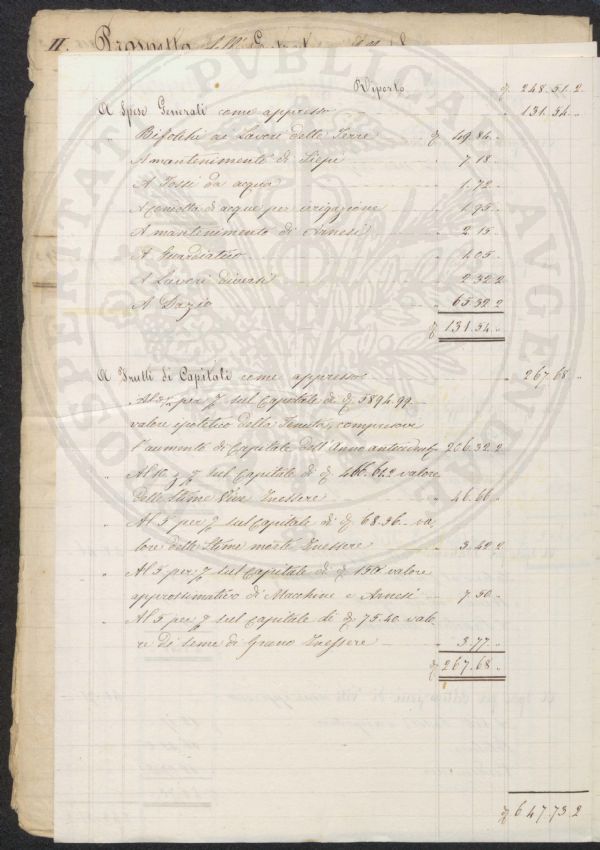 II. Prospetto dell'
PROSPERITATI PUBLICAE AUGENDAE
Riporto 248.51.2
A Spese Generali come appresso 131.54
Bifolchi ai Lavori delle Terre 49.84
A mantenimento di Siepi 7.18
A Fossi da acqua 1.72
A Condotta di acque per irrigazione 1.95
A mantenimento di Arnesi 2.15
A Guardiatico 1.05
A Lavori diversi 2.32.2
A Dazio 65.32.2
131.54
A Frutti di Capitali come appresso 267.68
Al 3½ per % sul Capitale di 5894.99
valore ipotetico della Tenuta, compresovi
l'aumento di Capitale dell'Anno antecedente 206.32.2
Al 10 per % sul Capitale di 466.61.2 valore
delle Stime Vive Inessere 46.66
Al 5 per % sul Capitale di 68.36 va-
lore delle Stime morte Inessere 3.42.2
Al 5 per % sul Capitale di 150 valore
approssimativo di Macchine e Arnesi 7.50
Al 5 per % sul Capitale di 75.40 valo-
re di seme di Grano Inessere 3.77
267.68
647.73.2